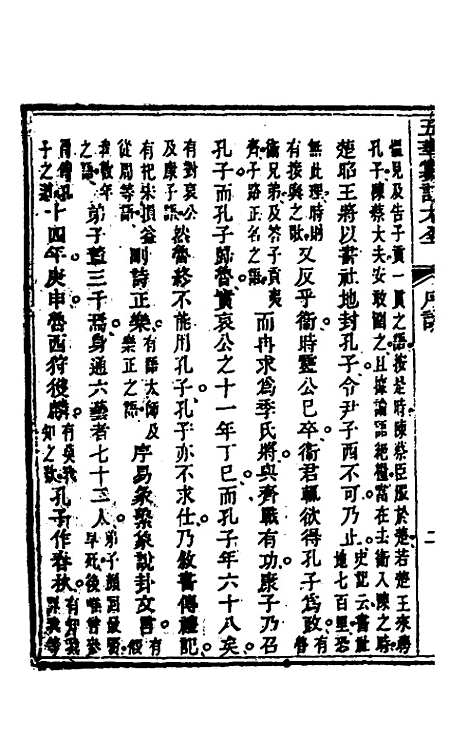 五華纂訂大全 序說 二
慍見及告子貢一貫之語。按是時陳蔡臣服於楚若楚王來聘
孔子陳蔡大夫安敢圍之且據論語絕糧當在去衛入陳之時
楚昭王將以書社地封孔子令尹子西不可乃止史記云書社地七百里恐
無此理時則有接輿之歌又反乎衛時靈公已卒衛君輒欲得孔子爲政有魯
衛兄弟及答子貢夷齊子路正名之語而冉求爲季氏將與齊戰有功康子乃召
孔子而孔子歸魯實哀公之十一年丁巳而孔子年六十八矣
有對哀公及康子語然魯終不能用孔子孔子亦不求仕乃敘書傳禮記
有杞宋損益從周等語刪詩正樂有語太師及樂正之語序易彖繫象說卦文言有假
我數年之語弟子蓋三千焉身通六藝者七十二人弟子顏回最賢早死後唯曾參
得傳孔子之道十四年庚申魯西狩獲麟有莫我知之歎孔子作春秋有知我罪我等